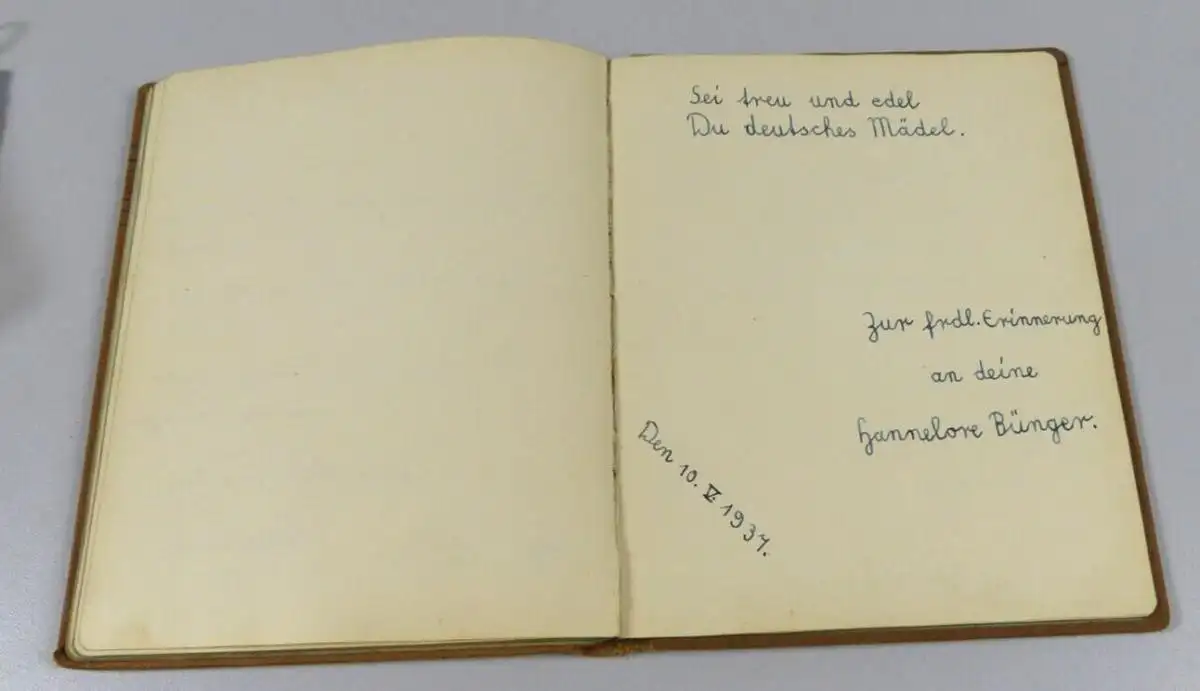 Sei treu und edel
Du deutsches Mädel.
Zur frdl. Erinnerung
an deine
Hannelore Bünger.
Den 10. V. 1937.